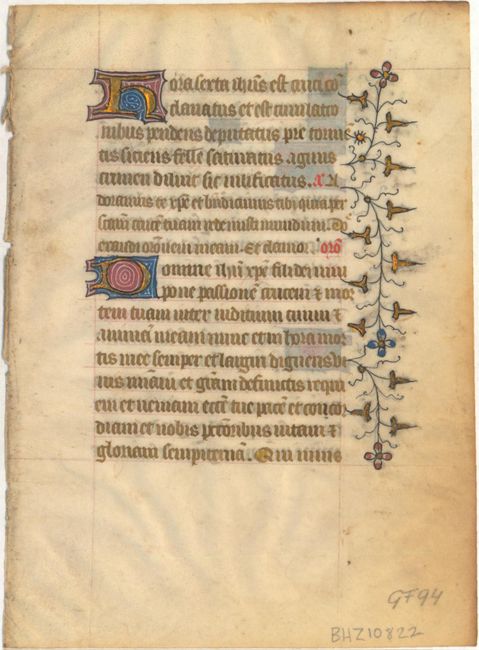 Hora sexta ihūs est cruci cō
clauatus et est cum latro
nibus pendens deputatus pre tormē
tis siciens felle saturatus agnus
crimen diluit sic
doramus te xp̄e et bn̄dicimus tibi quia per
scām crucē tuam redemisti mundum. Do
exaudi orōnem meam. Et clamor. orō
Domine ihū xp̄e fili dei uiui
pone passionē crucem ⁊ mor
tem tuam inter iudicium tuum ⁊
animā meam nunc et in hora mor
tis mee semper et largiri digneris ui
uis miām et grām defunctis requi
em et ueniam eccē tue pacē et concor
diam et nobis pctōribus uitam ⁊
gloriam sempiternā. Qui uiuis
GF94
BHZ10822